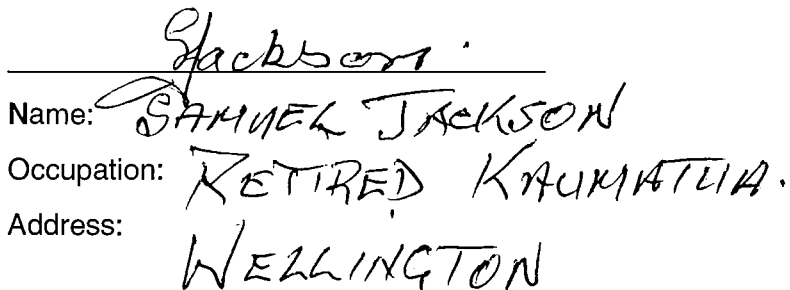 SJackson.
Name: SAMUEL JACKSON
Occupation: RETIRED KAUMATUA.
Address:
WELLINGTON